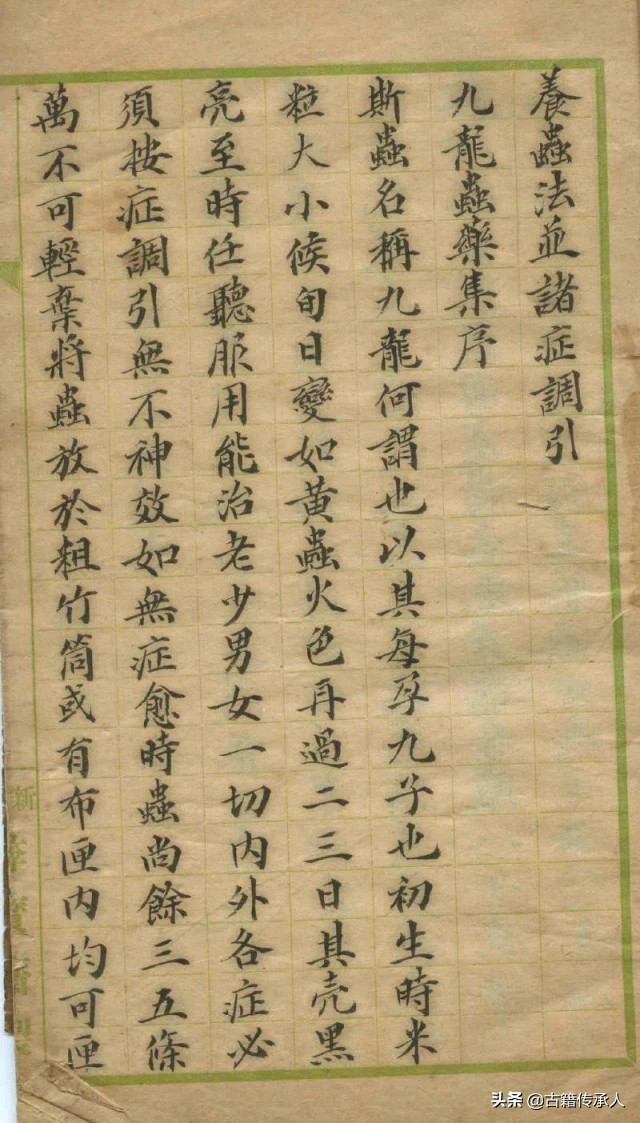 養蟲法並諸症調引
九龍蟲藥集序
斯蟲名稱九龍何謂也以其每孕九子也初生時米
粒大小候旬日變如黃蟲火色再過二三日其壳黑
亮至時任聽服用能治老少男女一切內外各症必
須按症調引無不神效如無症愈時蟲尚餘三五條
萬不可輕棄將蟲放於粗竹筒或有布匣內均可匣
头条 @古籍传承人